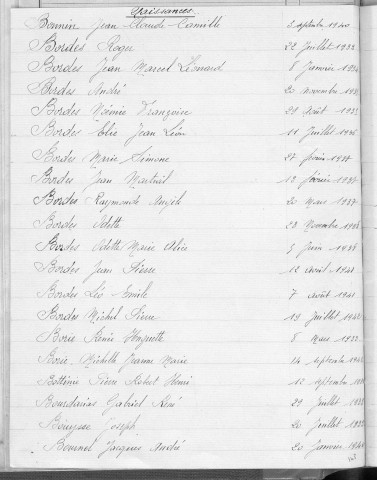 Naissances
Bonnin Jean Claude Camille 3 septembre 1940
Bordes Roger 22 Juillet 1933
Bordes Jean Marcel Léonard 8 Janvier 1934
Bordes André 20 novembre
Bordes Noémie Françoise 29 Août 1935
Bordes Elie Jean Léon 11 Juillet 1936
Bordes Marie Simone 27 février 1937
Bordes Jean 12 février 1937
Bordes Raymonde Angèle 20 mars 1937
Bordes Odette 23 Novembre 1938
Bordes Odette Marie Alice 5 Juin 1938
Bordes Jean Pierre 12 avril 1941
Bordes Léo Emile 7 août 1941
Bordes Michel Pierre 19 Juillet 1942
Borie Renée Henriette 8 mars 1933
Borie Michelle Jeanne Marie 14 septembre
Pierre Robert Henri 12 septembre
Bourdarias Gabriel René 29 Juillet
Joseph 20 Juillet
Jacques André 20 Janvier 1941